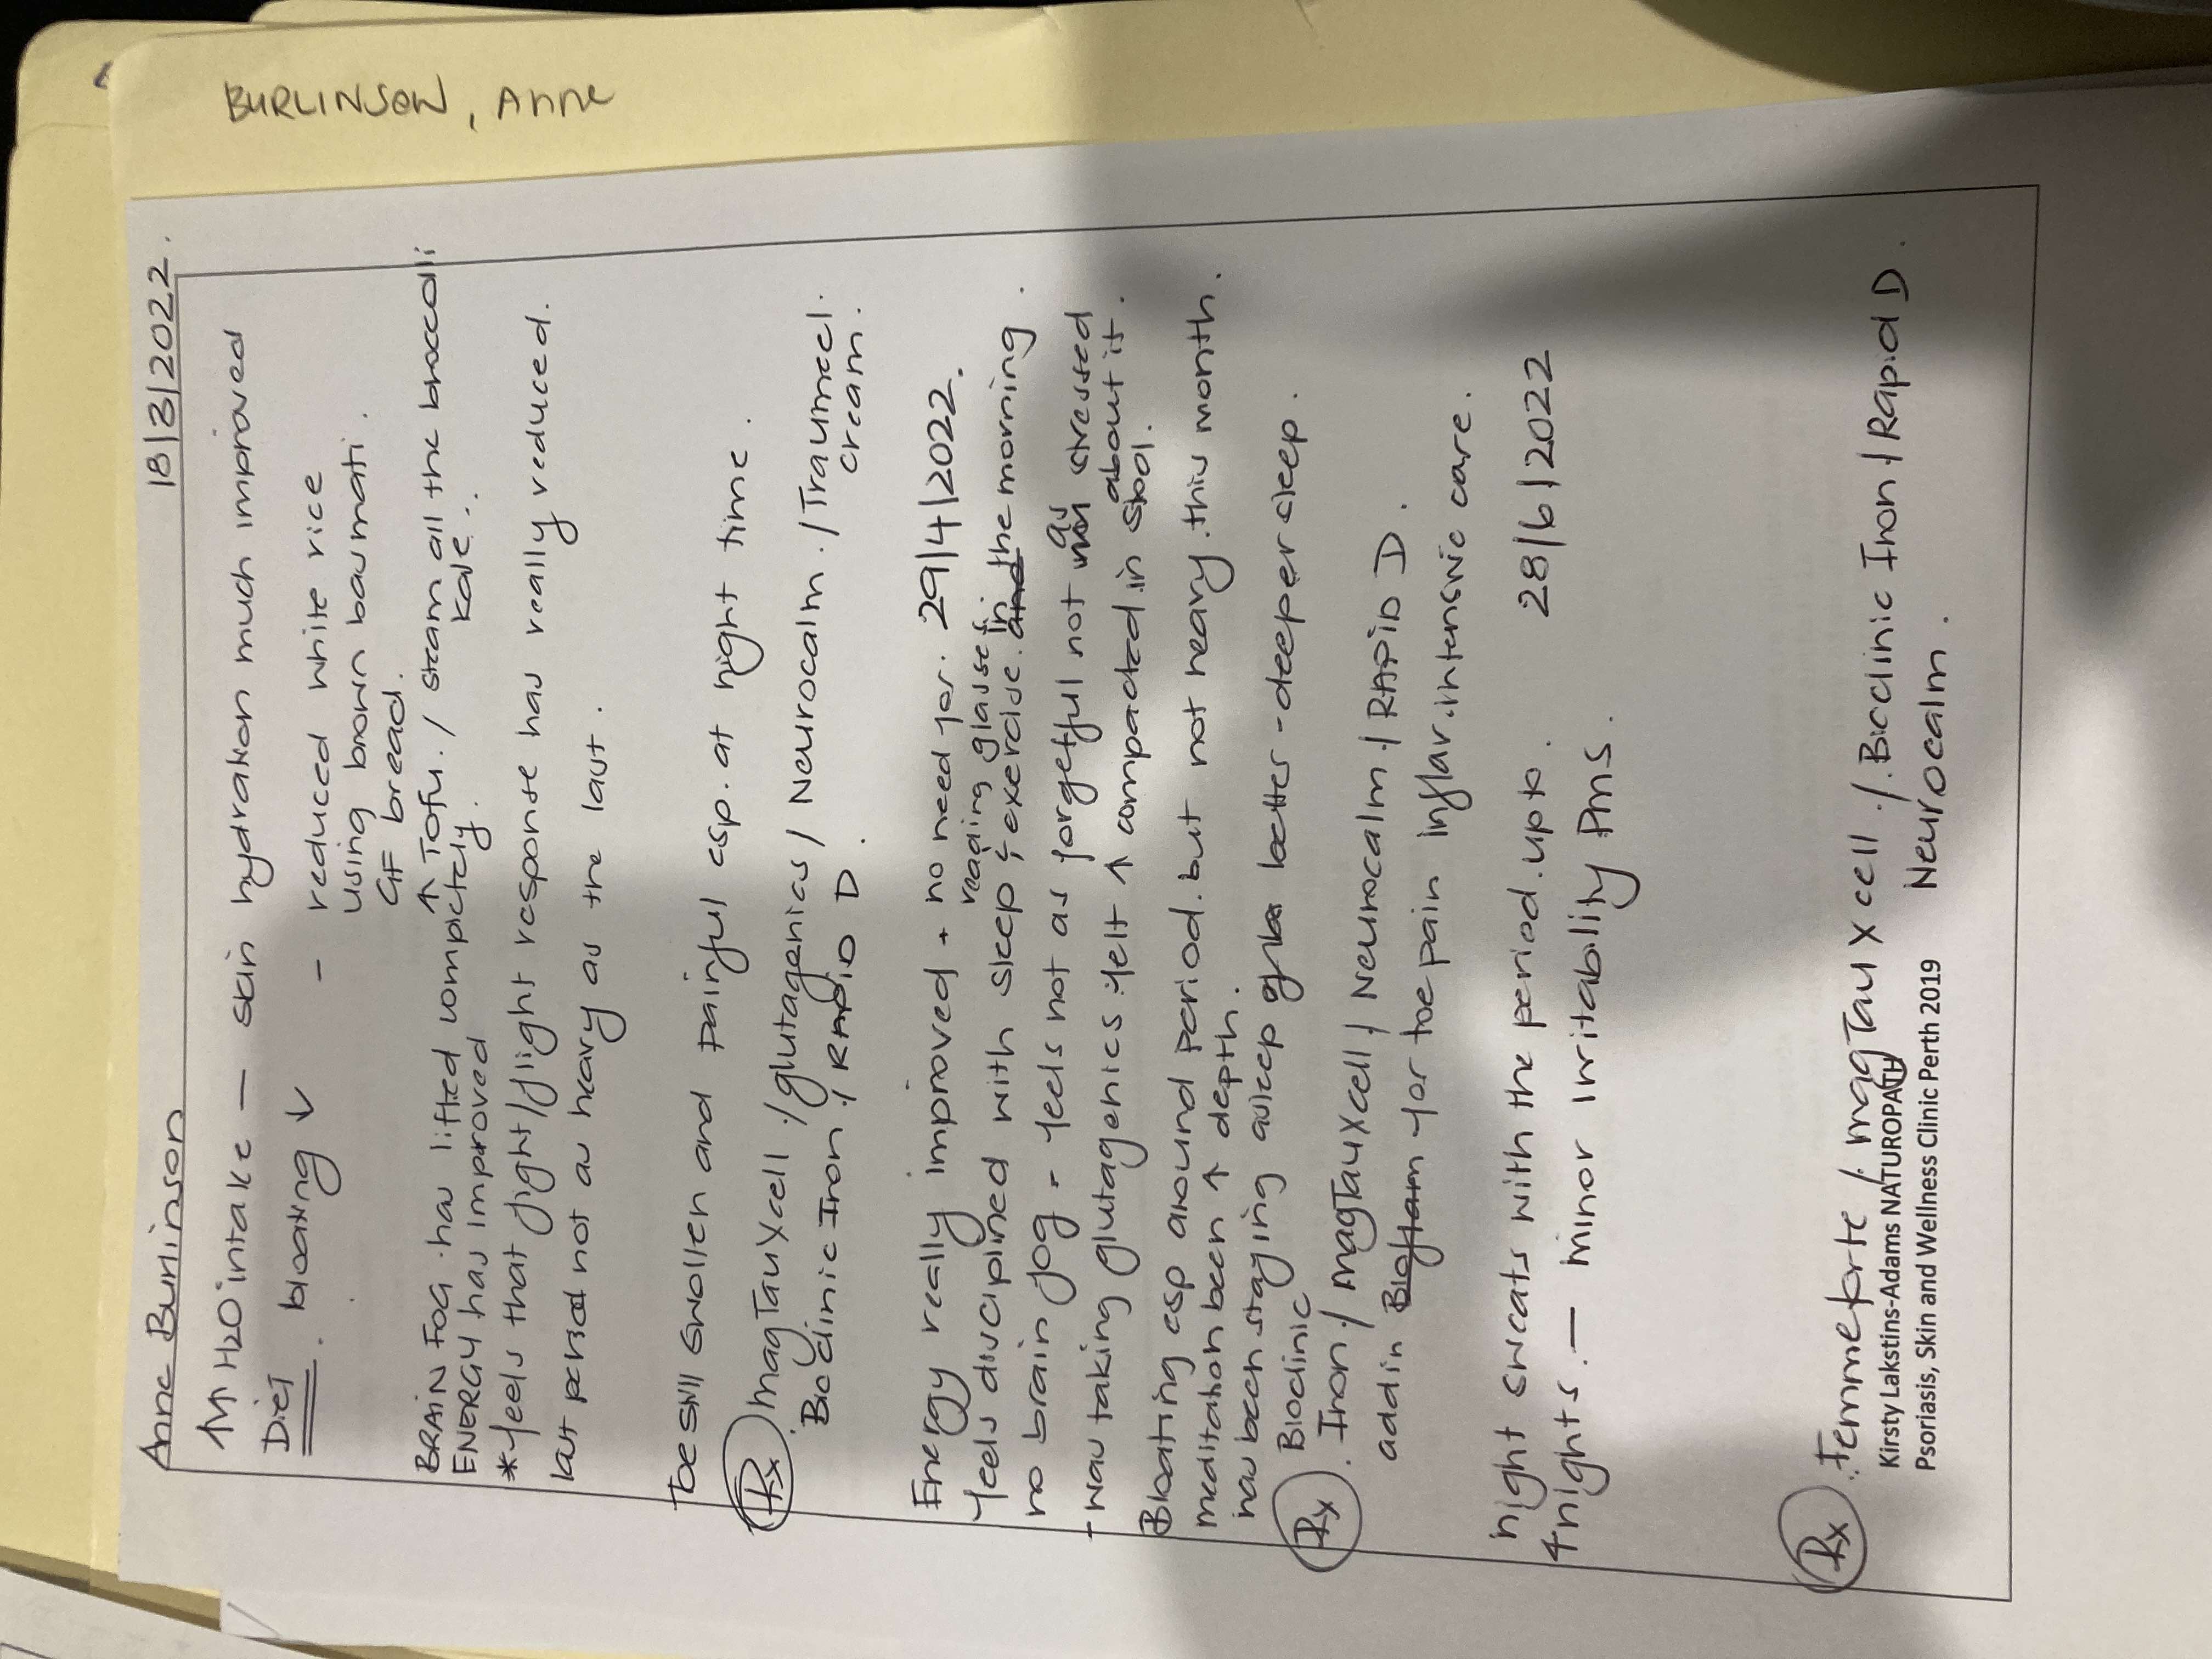 BURLINSON, Anne
Anne Burlinson 18/3/2022.
↑↑ H2O intake — skin hydration much improved
Diet. bloating ↓ - reduced white rice
using brown basmati.
GF bread.
↑ Tofu. / steam all the broccoli
BRAIN FOG. has lifted completely. kale.
ENERGY has improved
* feels that fight/flight response has really reduced.
last period not as heavy as the last.
Toe still swollen and painful esp. at night time.
Rx MagTauXcell / glutagenics / Neurocalm. / Traumeel.
Bioclinic Iron / RAPID D. cream.
Energy really improved + no need for. 29/4/2022.
reading glasses.
feels disciplined with sleep & exercise. in the morning.
no brain fog - feels not as forgetful not as stressed
about it.
- was taking glutagenics felt ↑ compacted in stool.
Bloating esp around period. but not heavy this month.
meditation been ↑ depth.
has been staying asleep better - deeper sleep.
Rx Bioclinic
. Iron / MagTauXcell / Neurocalm / RAPID D.
add in for toe pain Inflav. intensive care.
night sweats with the period. up to. 28/6/2022
4 nights. — minor irritability PMS.
Rx Femmeforte / MagTau X cell / Bioclinic Iron / Rapid D.
Neurocalm.
Kirsty Lakstins-Adams NATUROPATH
Psoriasis, Skin and Wellness Clinic Perth 2019